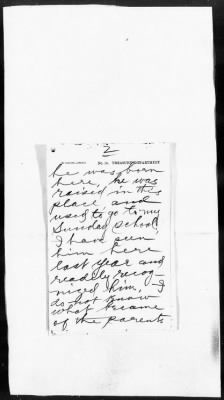 2
No. 10. TREASURY DEPARTMENT
he was born
here, he was
raised in this
place and
used to go to my
Sunday School,
I have seen
him here
last year and
readily recog-
nized him, I
do not know
what became
of the parents